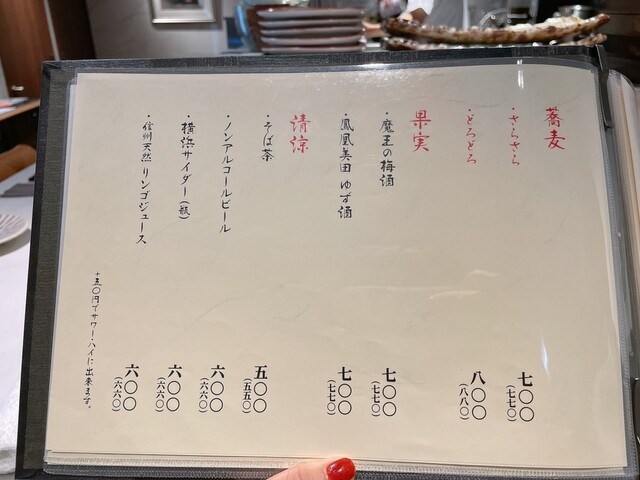 蕎麦
・さらさら 七〇〇 (七七〇)
・とろとろ 八〇〇 (八八〇)
果実
・魔王の梅酒 七〇〇 (七七〇)
・鳳凰美田 ゆず酒 七〇〇 (七七〇)
清涼
・そば茶 五〇〇 (五五〇)
・ノンアルコールビール 六〇〇 (六六〇)
・横浜サイダー(瓶) 六〇〇 (六六〇)
・信州天然 リンゴジュース 六〇〇 (六六〇)
+五〇円でサワー・ハイに出来ます。